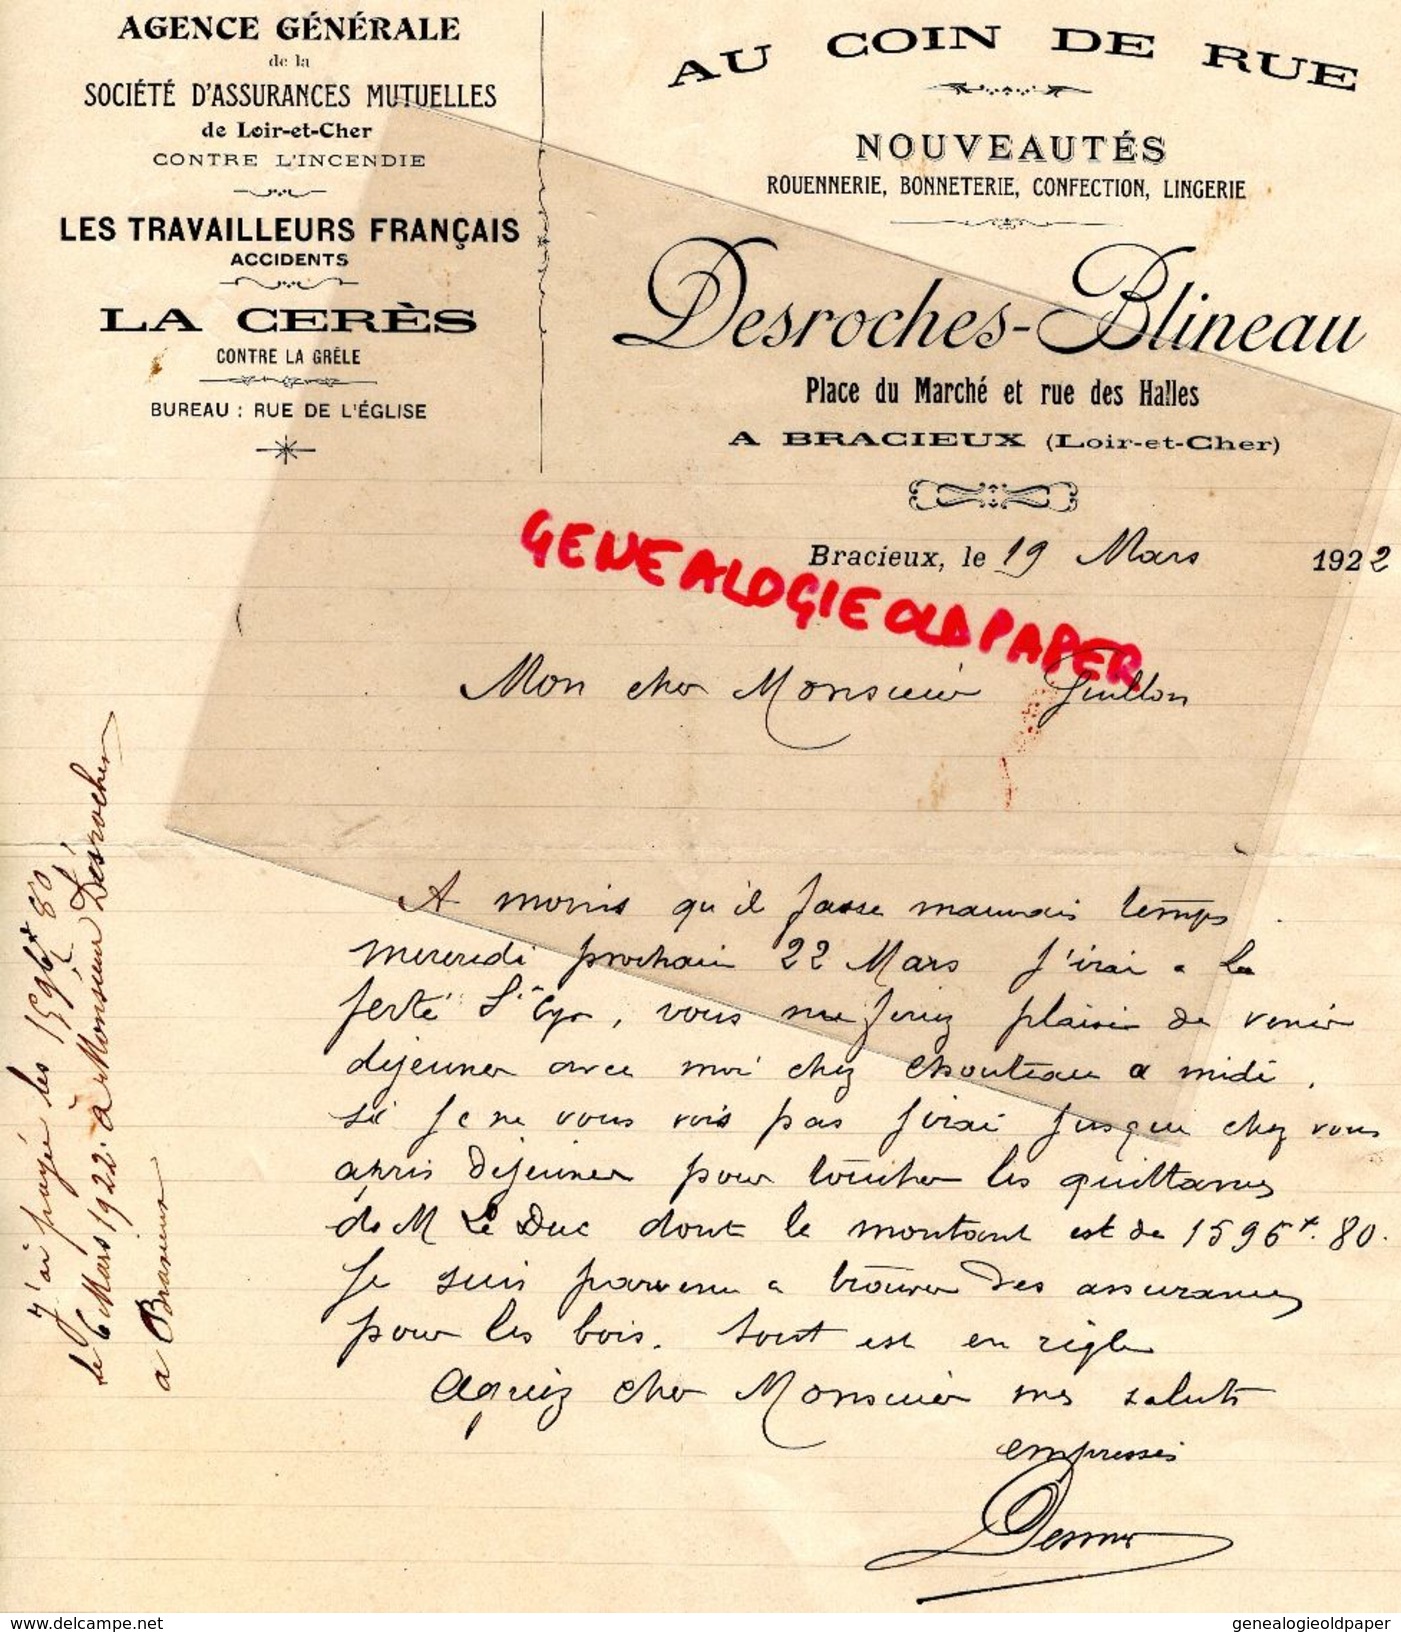 AGENCE GÉNÉRALE
de la
SOCIÉTÉ D'ASSURANCES MUTUELLES
de Loir-et-Cher
CONTRE L'INCENDIE
LES TRAVAILLEURS FRANÇAIS
ACCIDENTS
LA CERÈS
CONTRE LA GRÊLE
BUREAU : RUE DE L'ÉGLISE
AU COIN DE RUE
NOUVEAUTÉS
ROUENNERIE, BONNETERIE, CONFECTION, LINGERIE
Desroches-Blineau
Place du Marché et rue des Halles
A BRACIEUX (Loir-et-Cher)
Bracieux, le 19 Mars 1922
GENEALOGIE OLD PAPER
Mon cher Monsieur Guillon
A moins qu'il fasse mauvais temps
mercredi prochain 22 Mars j'irai a la
ferté St Cyr, vous me feriez plaisir de venir
dejeuner avec moi chez Chouteau a midi.
si je ne vous vois pas j'irai jusque chez vous
apris dejeuner pour toucher les quittances
de M Le Duc dont le montant est de 1596f.80.
Je suis parvenu a trouver des assurances
pour les bois. tout est en règle
Agréez cher Monsieur mes saluts
empressés
J'ai payée les 1596f 80
le 6 Mars 1922. a Monsieur Desroches
a Bracieux
www.delcampe.net
genealogieoldpaper